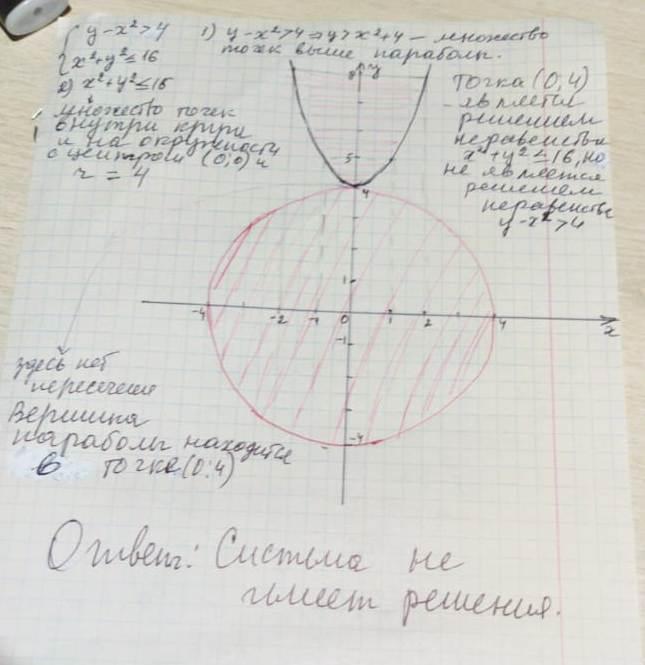 y-x²>4
x²+y²≤16
1) y-x²>4 ⇒ y>x²+4 – множество
точек выше параболы.
2) x²+y²≤16
множество точек
внутри круга
и на окружности
с центром (0;0) и
r = 4
Точка (0;4)
является
решением
неравенства
x²+y²≤16, но
не является
решением
неравенства
y-x²>4
y
5
4
1
-4
-2
-1
0
1
2
4
x
-1
-4
здесь нет
пересечения
Вершина
параболы находится
в точке (0;4)
Ответ: Система не
имеет решения.